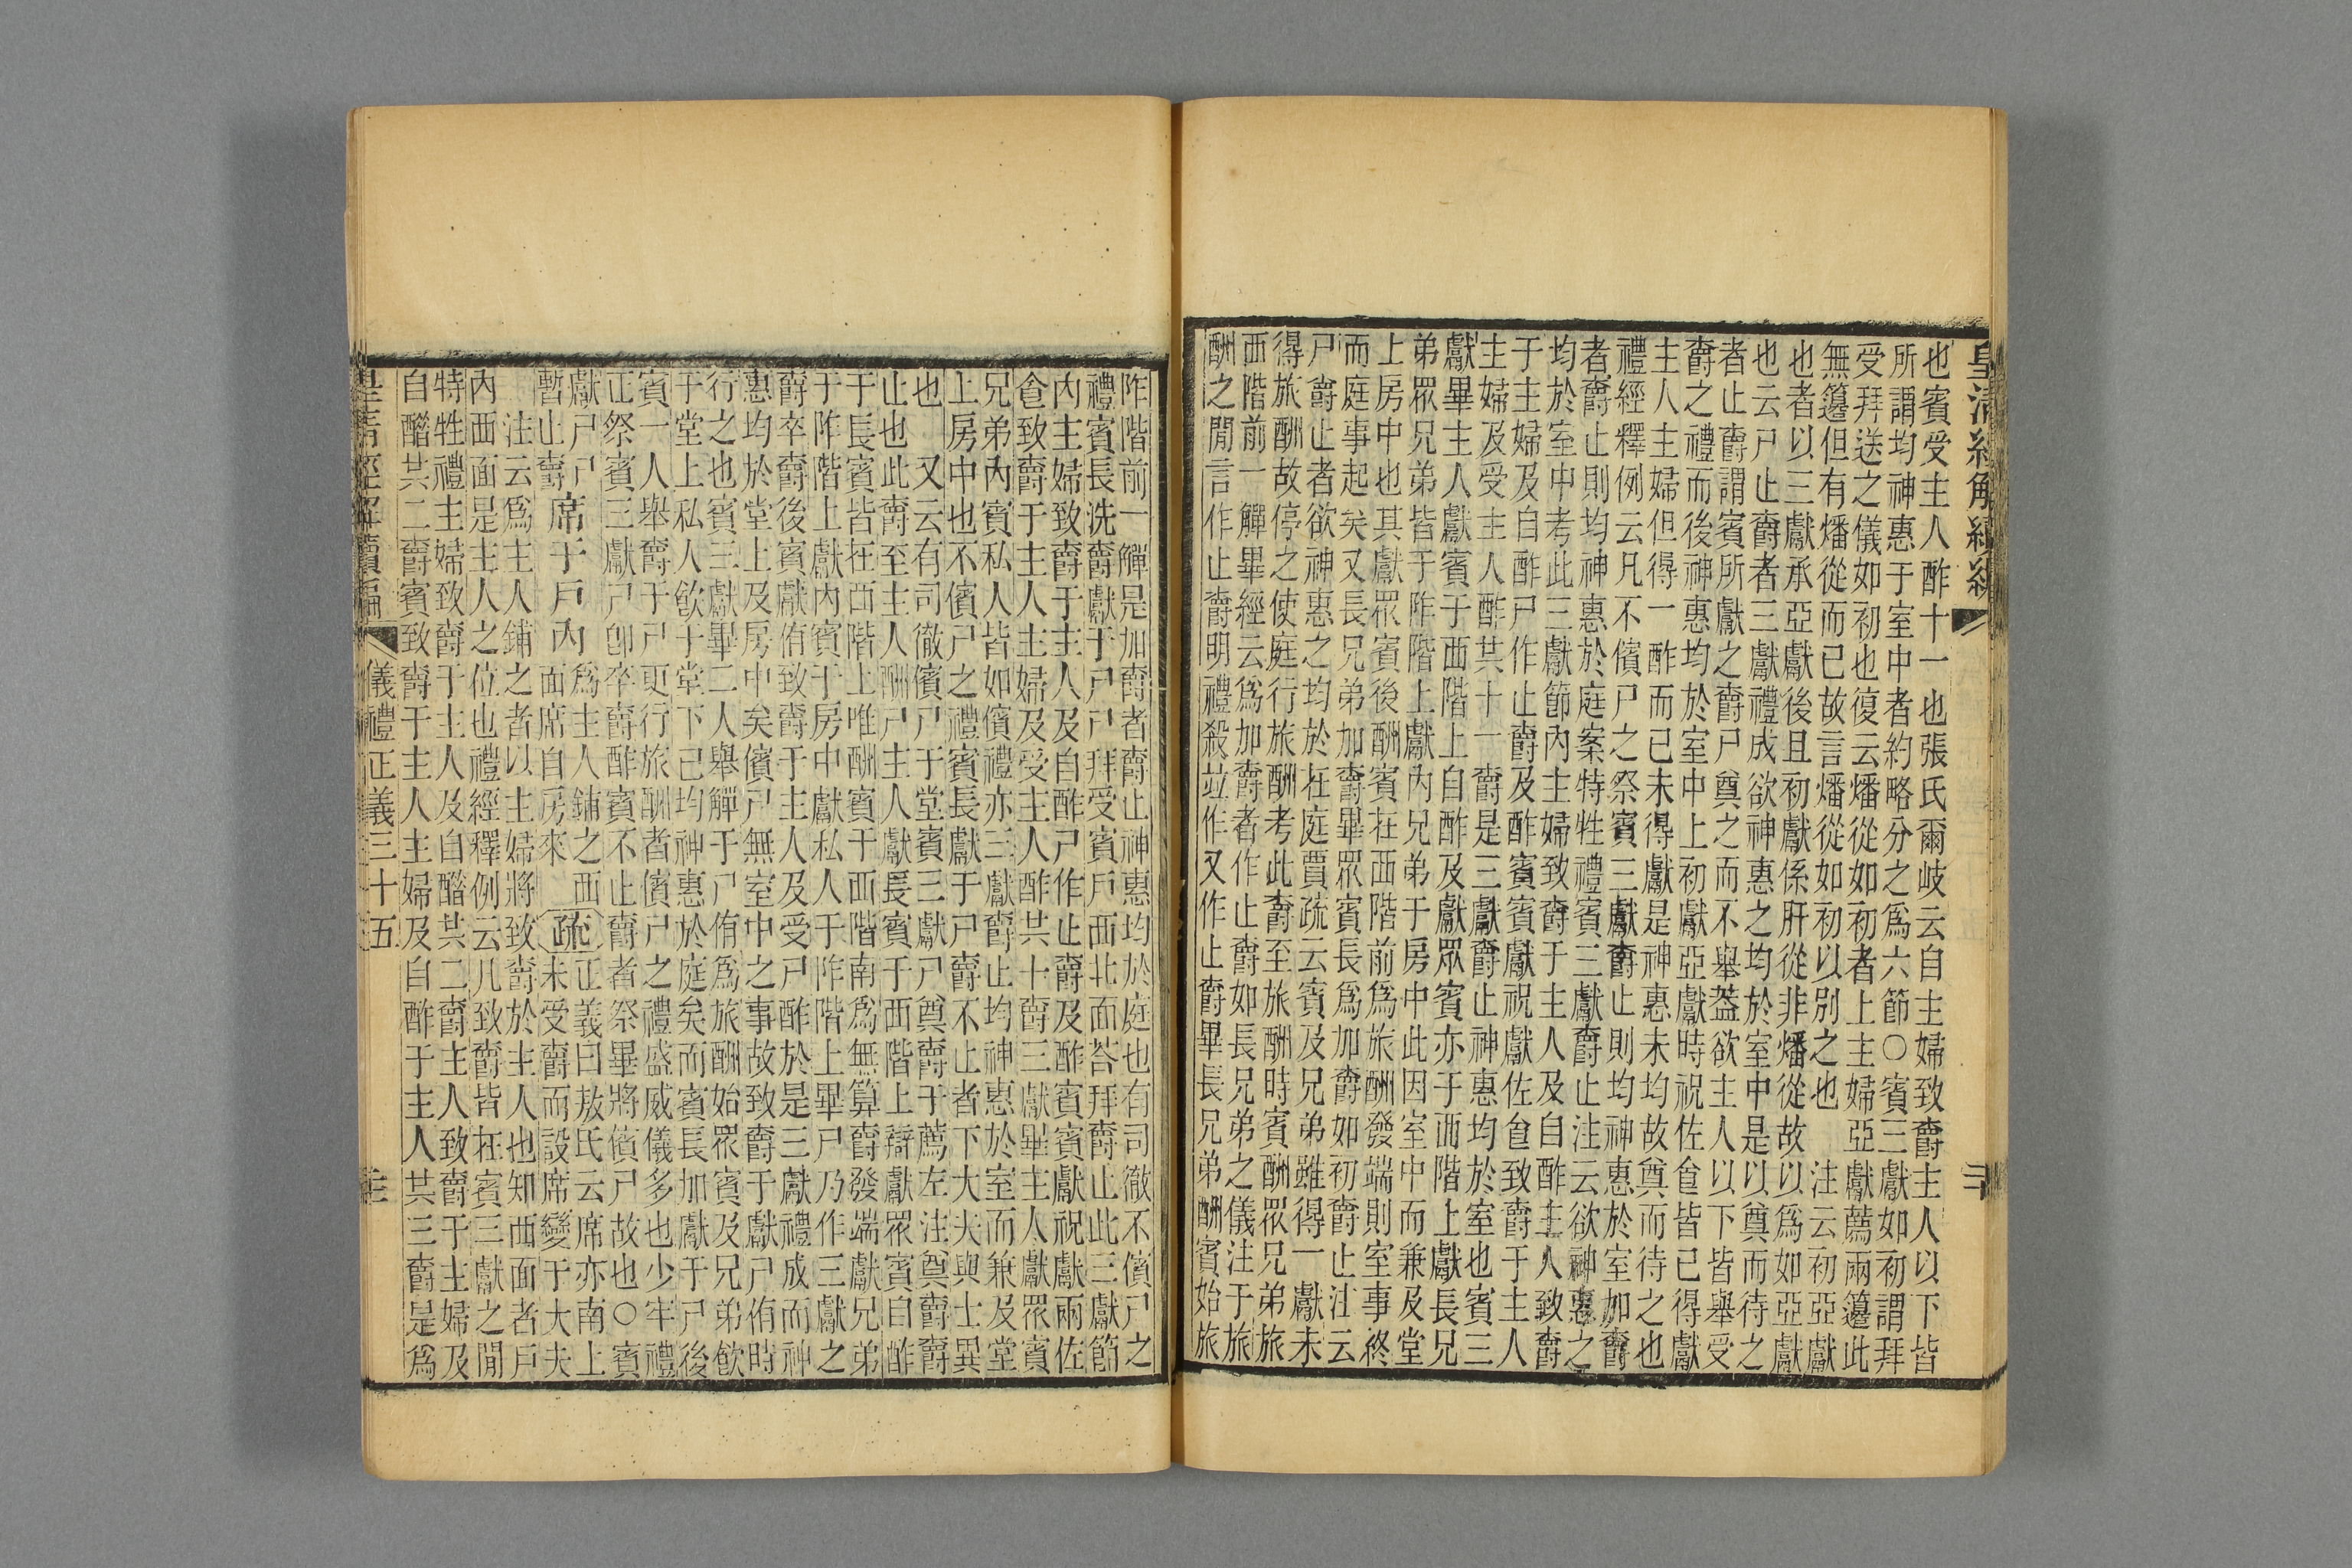 皇清經解續編
也賓受主人酢十一也張氏爾岐云自主婦致爵主人以下皆
所謂均神惠于室中者約略分之爲六節○賓三獻如初謂拜
受拜送之儀如初也復云燔從如初者上主婦亞獻薦兩籩此
無籩但有燔從而已故言燔從如初以別之也　注云初亞獻
也者以三獻承亞獻後且初獻係肝從非燔從故以爲如亞獻
也云尸止爵者三獻禮成欲神惠之均於室中是以奠而待之
者止爵謂賓所獻之爵尸奠之而不舉葢欲主人以下皆舉受
爵之禮而後神惠均於室中上初獻亞獻時祝佐食皆已得獻
主人主婦但得一酢而已未得獻是神惠未均故奠而待之也
禮經釋例云凡不儐尸之祭賓三獻爵止則均神惠於室加爵
者爵止則均神惠於庭案特牲禮賓三獻爵止注云欲神惠之
均於室中考此三獻節內主婦致爵于主人及自酢主人致爵
于主婦及自酢尸作止爵及酢賓賓獻祝獻佐食致爵于主人
主婦及受主人酢共十一爵是三獻爵止神惠均於室也賓三
獻畢主人獻賓于西階上自酢及獻眾賓亦于西階上獻長兄
弟眾兄弟皆于阼階上獻內兄弟于房中此因室中而兼及堂
上房中也其獻眾賓後酬賓在西階前爲旅酬發端則室事終
而庭事起矣又長兄弟加爵畢眾賓長爲加爵如初爵止注云
尸爵止者欲神惠之均於在庭賈疏云賓及兄弟雖得一獻未
得旅酬故停之使庭行旅酬考此爵至旅酬時賓酬眾兄弟旅
西階前一觶畢經云爲加爵者作止爵如長兄弟之儀注于旅
酬之閒言作止爵明禮殺竝作又作止爵畢長兄弟酬賓始旅
阼階前一觶是加爵者爵止神惠均於庭也有司徹不儐尸之
禮賓長洗爵獻于尸尸拜受賓戶西北面荅拜爵止此三獻節
內主婦致爵于主人及自酢尸作止爵及酢賓賓獻祝獻兩佐
食致爵于主人主婦及受主人酢共十爵三獻畢主人獻眾賓
兄弟內賓私人皆如儐禮亦三獻爵止均神惠於室而兼及堂
上房中也不儐尸之禮賓長獻于尸爵不止者下大夫與士異
也　又云有司徹儐尸于堂賓三獻尸奠爵于薦左注奠爵爵
止也此爵至主人酬尸主人獻長賓于西階上辯獻眾賓自酢
于長賓皆在西階上唯酬賓于西階南爲無算爵發端獻兄弟
于阼階上獻內賓于房中獻私人于阼階上畢尸乃作三獻之
爵卒爵後賓獻侑致爵于主人及受尸酢於是三獻禮成而神
惠均於堂上及房中矣儐尸無室中之事故致爵于獻尸侑時
行之也賓三獻畢二人舉觶于尸侑爲旅酬始眾賓及兄弟飮
于堂上私人飮于堂下已均神惠於庭矣而賓長加獻于尸後
賓一人舉爵于尸更行旅酬者儐尸之禮盛威儀多也少牢禮
正祭賓三獻尸卽卒爵酢賓不止爵者祭畢將儐尸故也○賓
獻尸尸
暫止爵席于戶內爲主人鋪之西
面席自房來疏正義曰敖氏云席亦南上
未受爵而設席變于大夫
注云爲主人鋪之者以主婦將致爵於主人也知西面者戶
內西面是主人之位也禮經釋例云凡致爵皆在賓三獻之閒
特牲禮主婦致爵于主人及自醋共二爵主人致爵于主婦及
自醋共二爵賓致爵于主人主婦及自酢于主人共三爵是爲
皇清經解續編
儀禮正義三十五